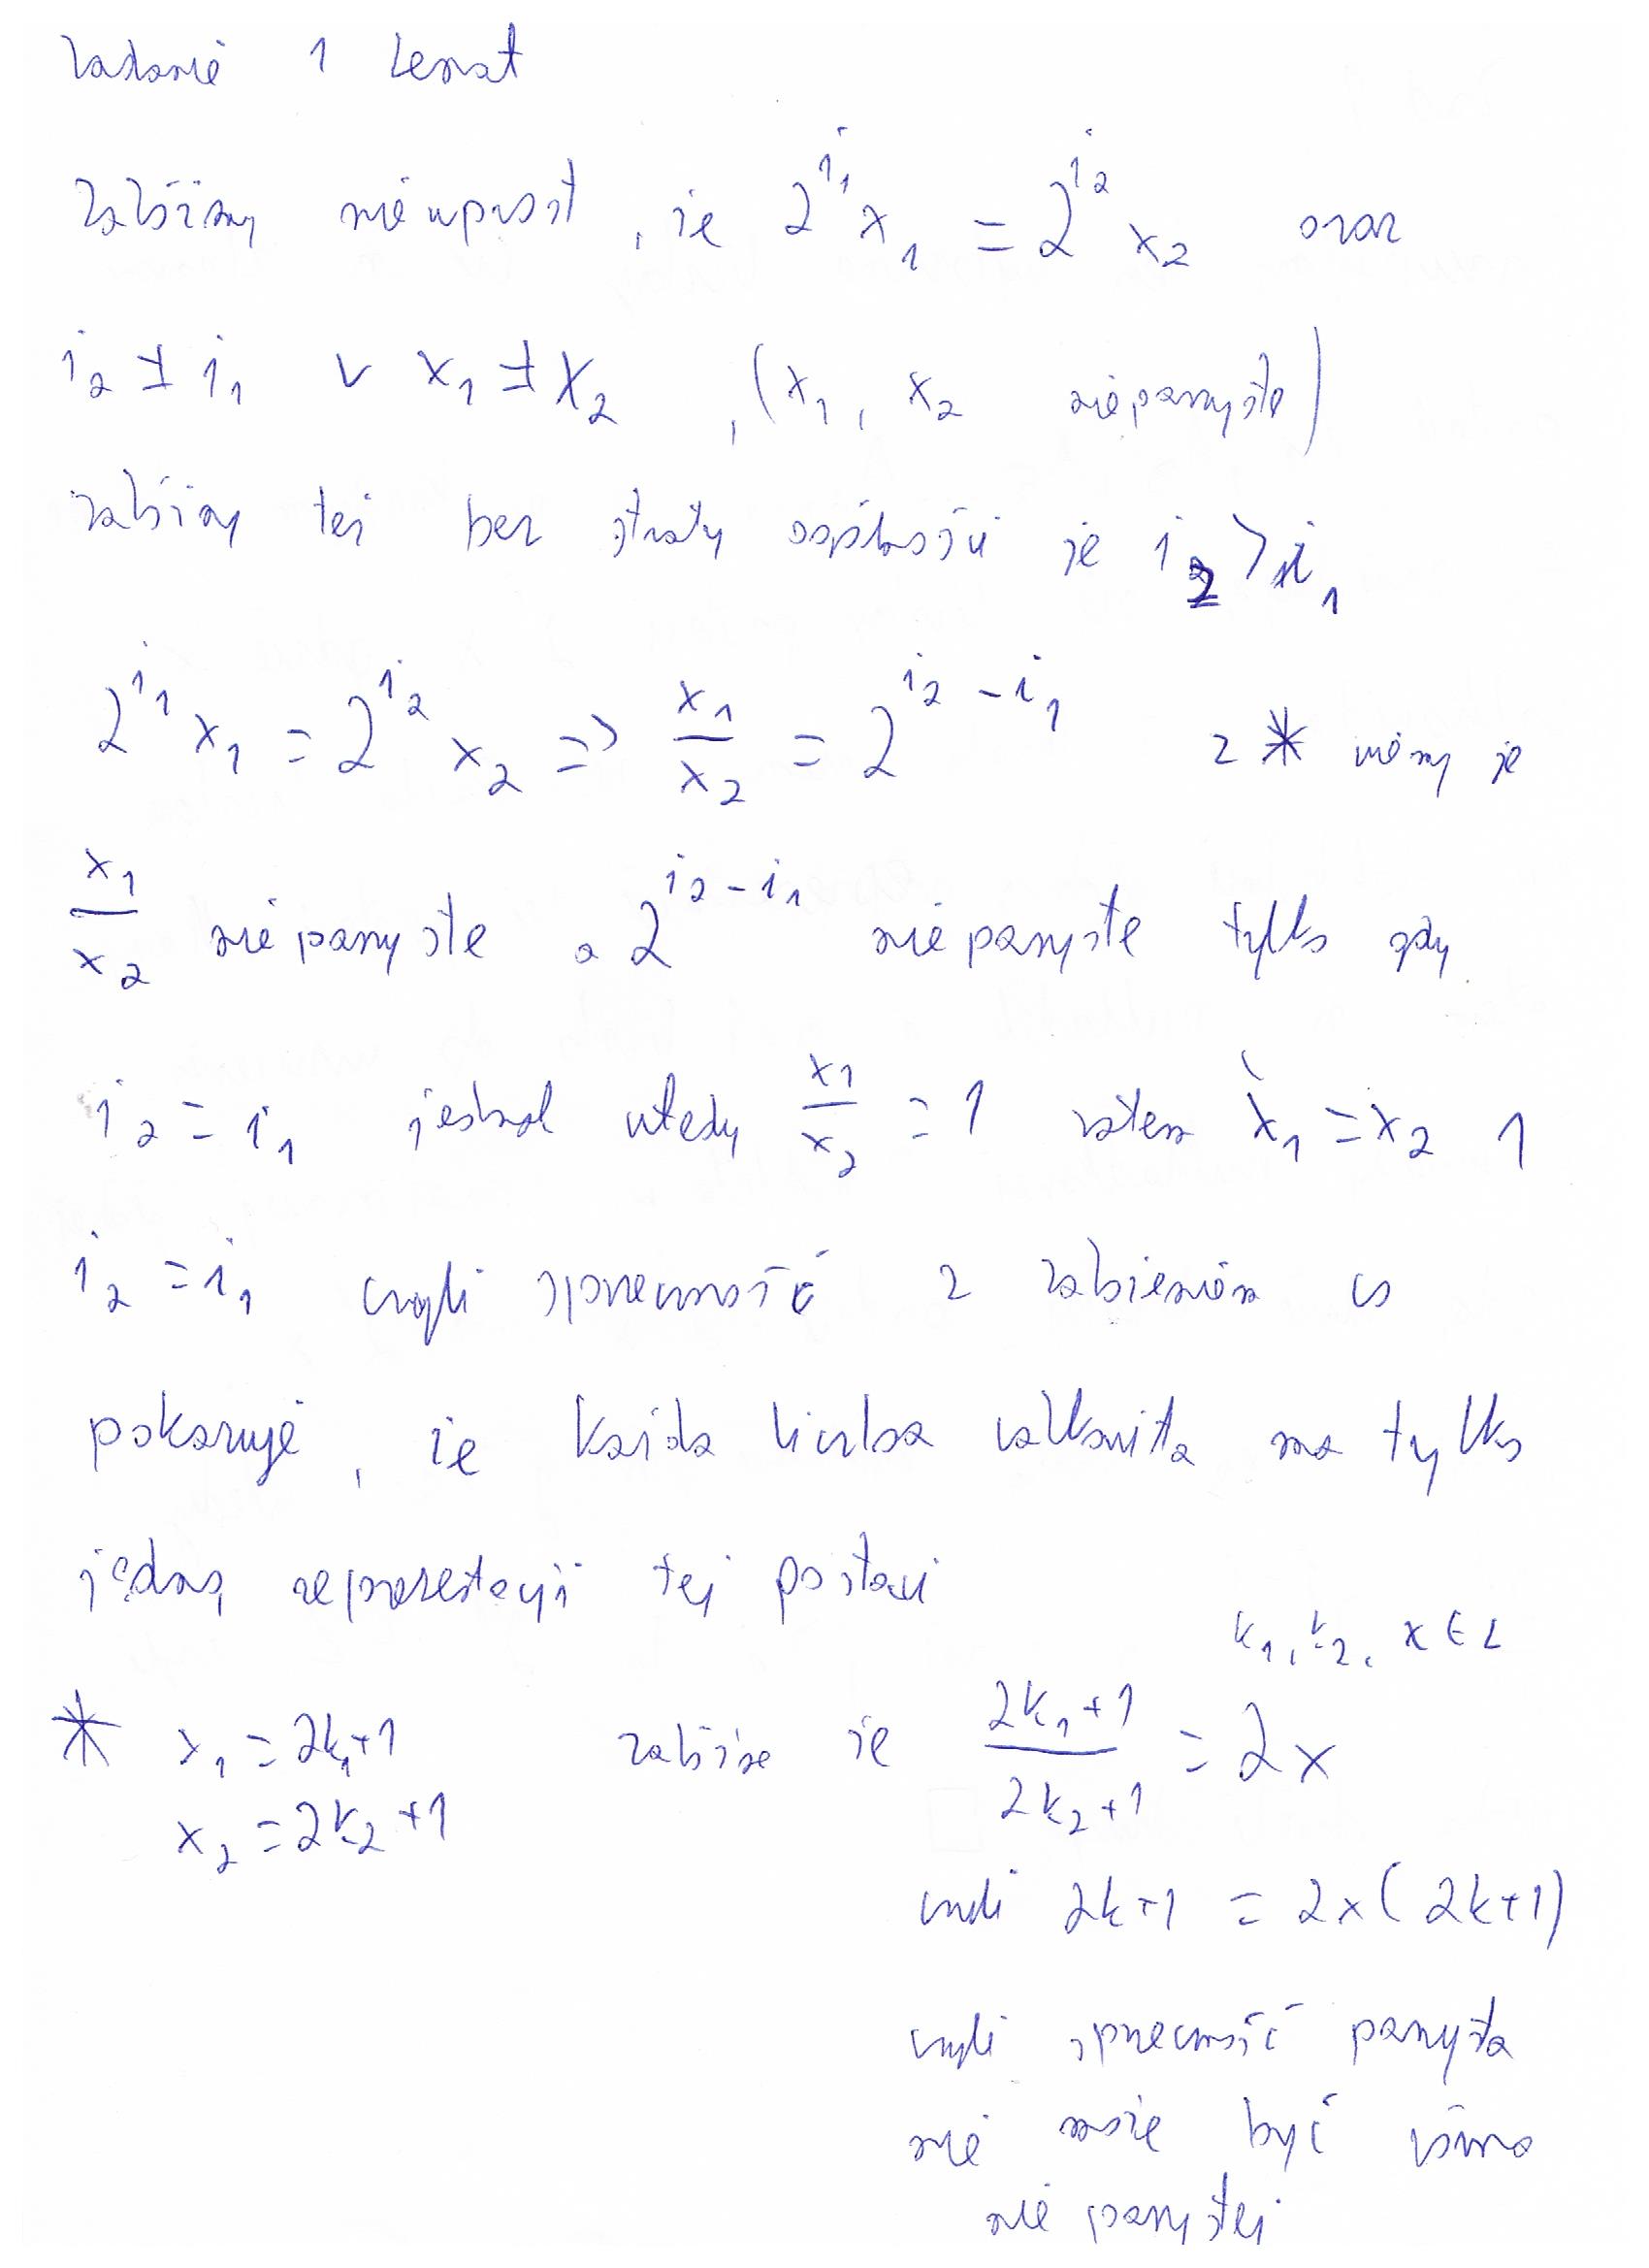 Zadanie 1 Lemat
Załóżmy nie wprost, że 2^{i_1} x_1 = 2^{i_2} x_2 oraz
i_2 ≠ i_1 ∨ x_1 ≠ x_2, (x_1, x_2 nieparzyste)
załóżmy też bez straty ogólności że i_2 > i_1
2^{i_1} x_1 = 2^{i_2} x_2 => x_1/x_2 = 2^{i_2 - i_1} z * wiemy że
x_1/x_2 nieparzyste a 2^{i_2 - i_1} nieparzyste tylko gdy
i_2 = i_1 jednak wtedy x_1/x_2 = 1 zatem x_1 = x_2 1
i_2 = i_1 czyli sprzeczność z założeniem co
pokazuje, że każda liczba całkowita ma tylko
jedną reprezentacji tej postaci
k_1, k_2, x ∈ Z
* x_1 = 2k_1+1 załóżmy że (2k_1+1)/(2k_2+1) = 2x
x_2 = 2k_2+1
czyli 2k+1 = 2x(2k+1)
czyli sprzeczność parzysta
nie może być równa
nieparzystej